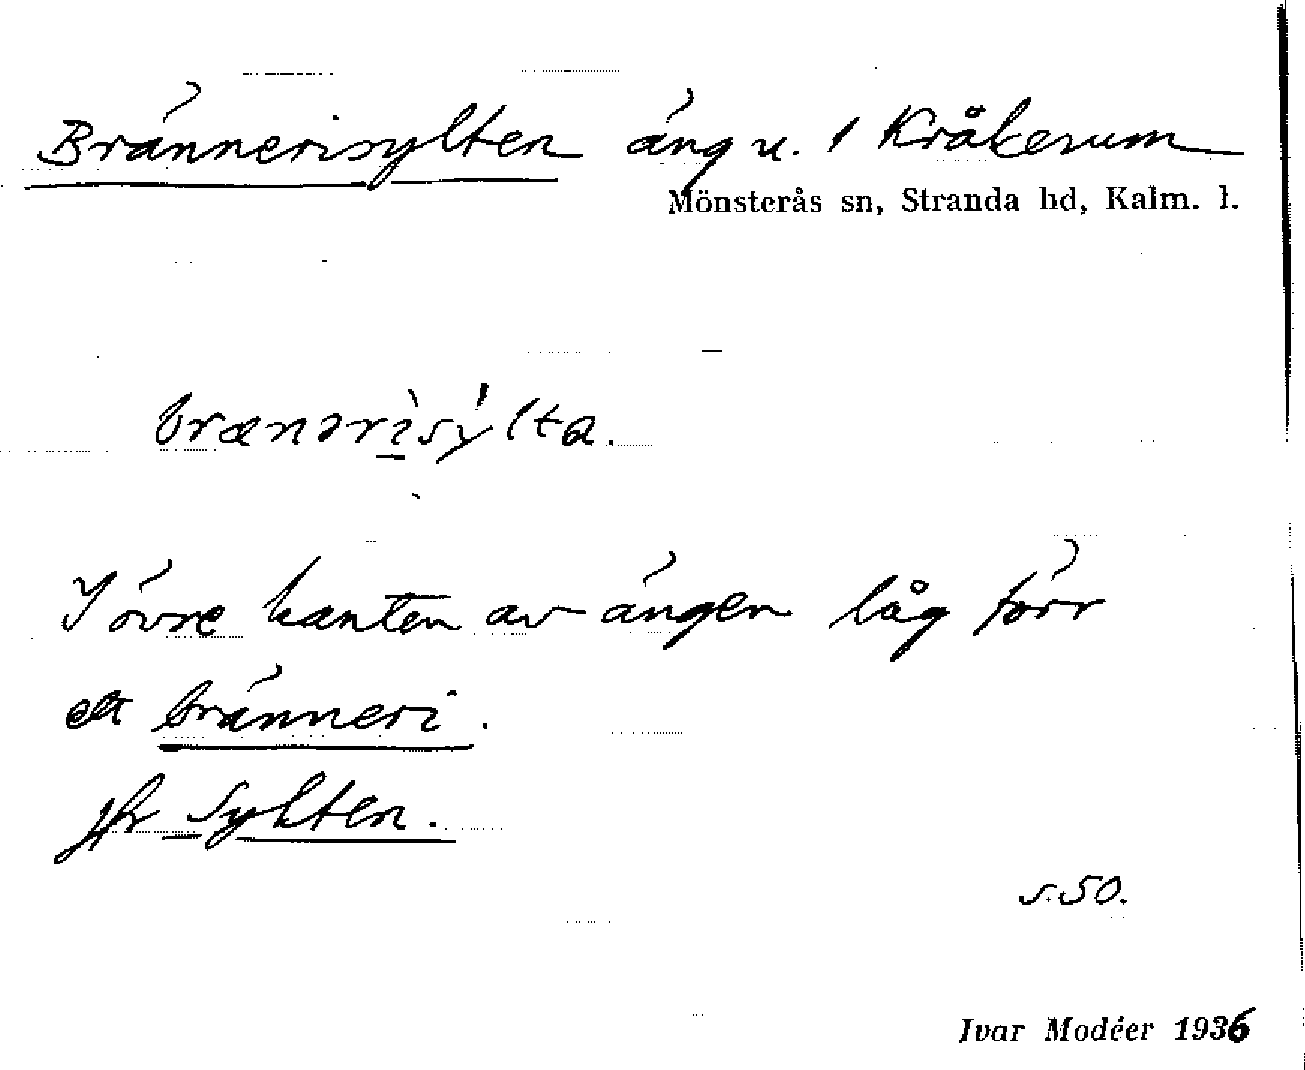 Brännerisylten äng u. 1 Kråkerum
Mönsterås sn, Stranda hd, Kalm. l.
brænərìsýlta.
I övre kanten av ängen låg förr
ett bränneri.
jfr Sylten.
s. 50.
Ivar Modéer 1936